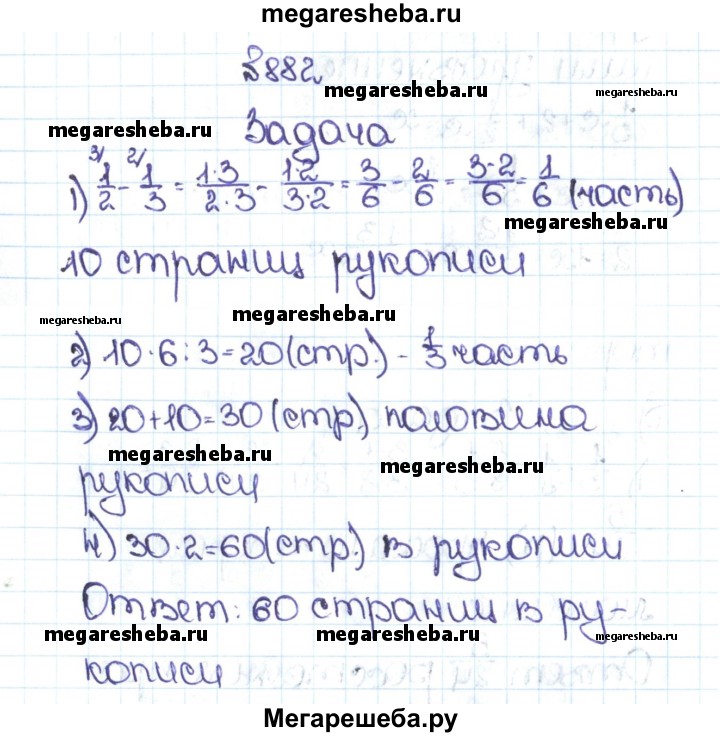 megaresheba.ru
№882
megaresheba.ru megaresheba.ru
megaresheba.ru Задача
1) 3/ 1/2 - 2/ 1/3 = 1·3/2·3 - 1·2/3·2 = 3/6 - 2/6 = 3-2/6 = 1/6 (часть)
megaresheba.ru
10 страниц рукописи
megaresheba.ru megaresheba.ru
2) 10·6:3=20(стр.) - 1/3 часть
3) 20+10=30 (стр.) половина
megaresheba.ru megaresheba.ru
рукописи
4) 30·2=60(стр.) в рукописи
Ответ: 60 страниц в ру-
megaresheba.ru megaresheba.ru megaresheba.ru
кописи
Мегарешеба.ру